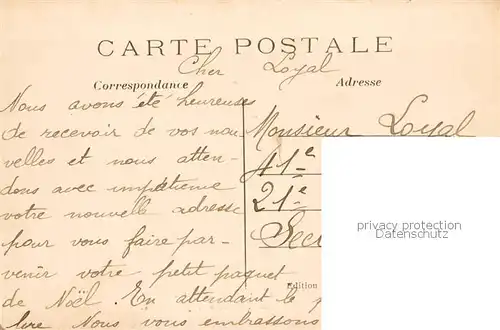 CARTE POSTALE
Cher Loyal
Correspondance
Adresse
Nous avons été heureuses
de recevoir de vos nou-
velles et nous atten-
dons avec impatience
votre nouvelle adresse
pour vous faire par-
venir votre petit paquet
de Noël. En attendant le
lire Nous vous embrassons
Monsieur Loyal
41e
21e
Sec
privacy protection
Datenschutz
Edition